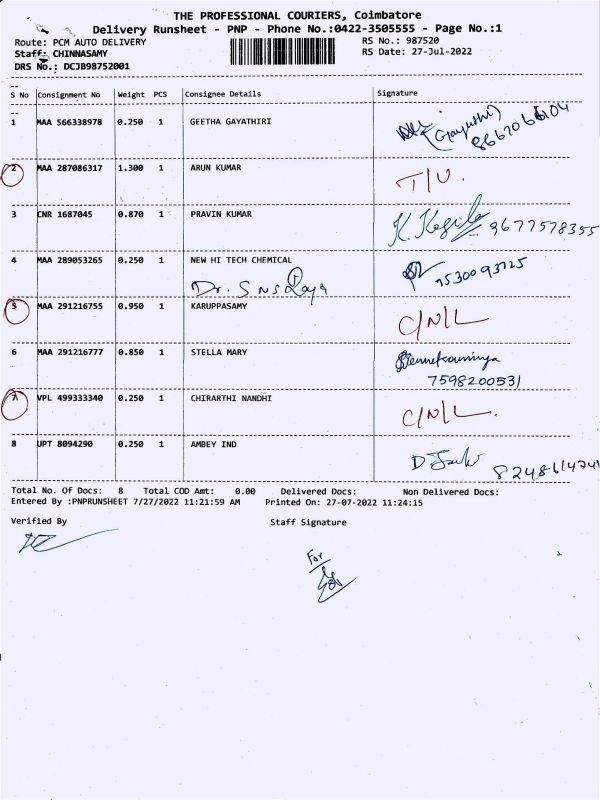 THE PROFESSIONAL COURIERS, Coimbatore
Delivery Runsheet - PNP - Phone No.:0422-3505555 - Page No.:1
Route: PCM AUTO DELIVERY RS No.: 987520
Staff: CHINNASAMY RS Date: 27-Jul-2022
DRS No.: DCJB98752001
S No Consignment No Weight PCS Consignee Details Signature
1 MAA 566338978 0.250 1 GEETHA GAYATHIRI (Gayathri)
2 MAA 287086317 1.300 1 ARUN KUMAR T/U.
3 CNR 1687045 0.870 1 PRAVIN KUMAR 9677578355
4 MAA 289053265 0.250 1 NEW HI TECH CHEMICAL
Dr. S NS Raja
5 MAA 291216755 0.950 1 KARUPPASAMY C/N/L
6 MAA 291216777 0.850 1 STELLA MARY
7598200531
7 VPL 499333340 0.250 1 CHIRARTHI NANDHI C/N/L.
8 UPT 8094290 0.250 1 AMBEY IND
Total No. Of Docs: 8 Total COD Amt: 0.00 Delivered Docs: Non Delivered Docs:
Entered By :PNPRUNSHEET 7/27/2022 11:21:59 AM Printed On: 27-07-2022 11:24:15
Verified By Staff Signature
For